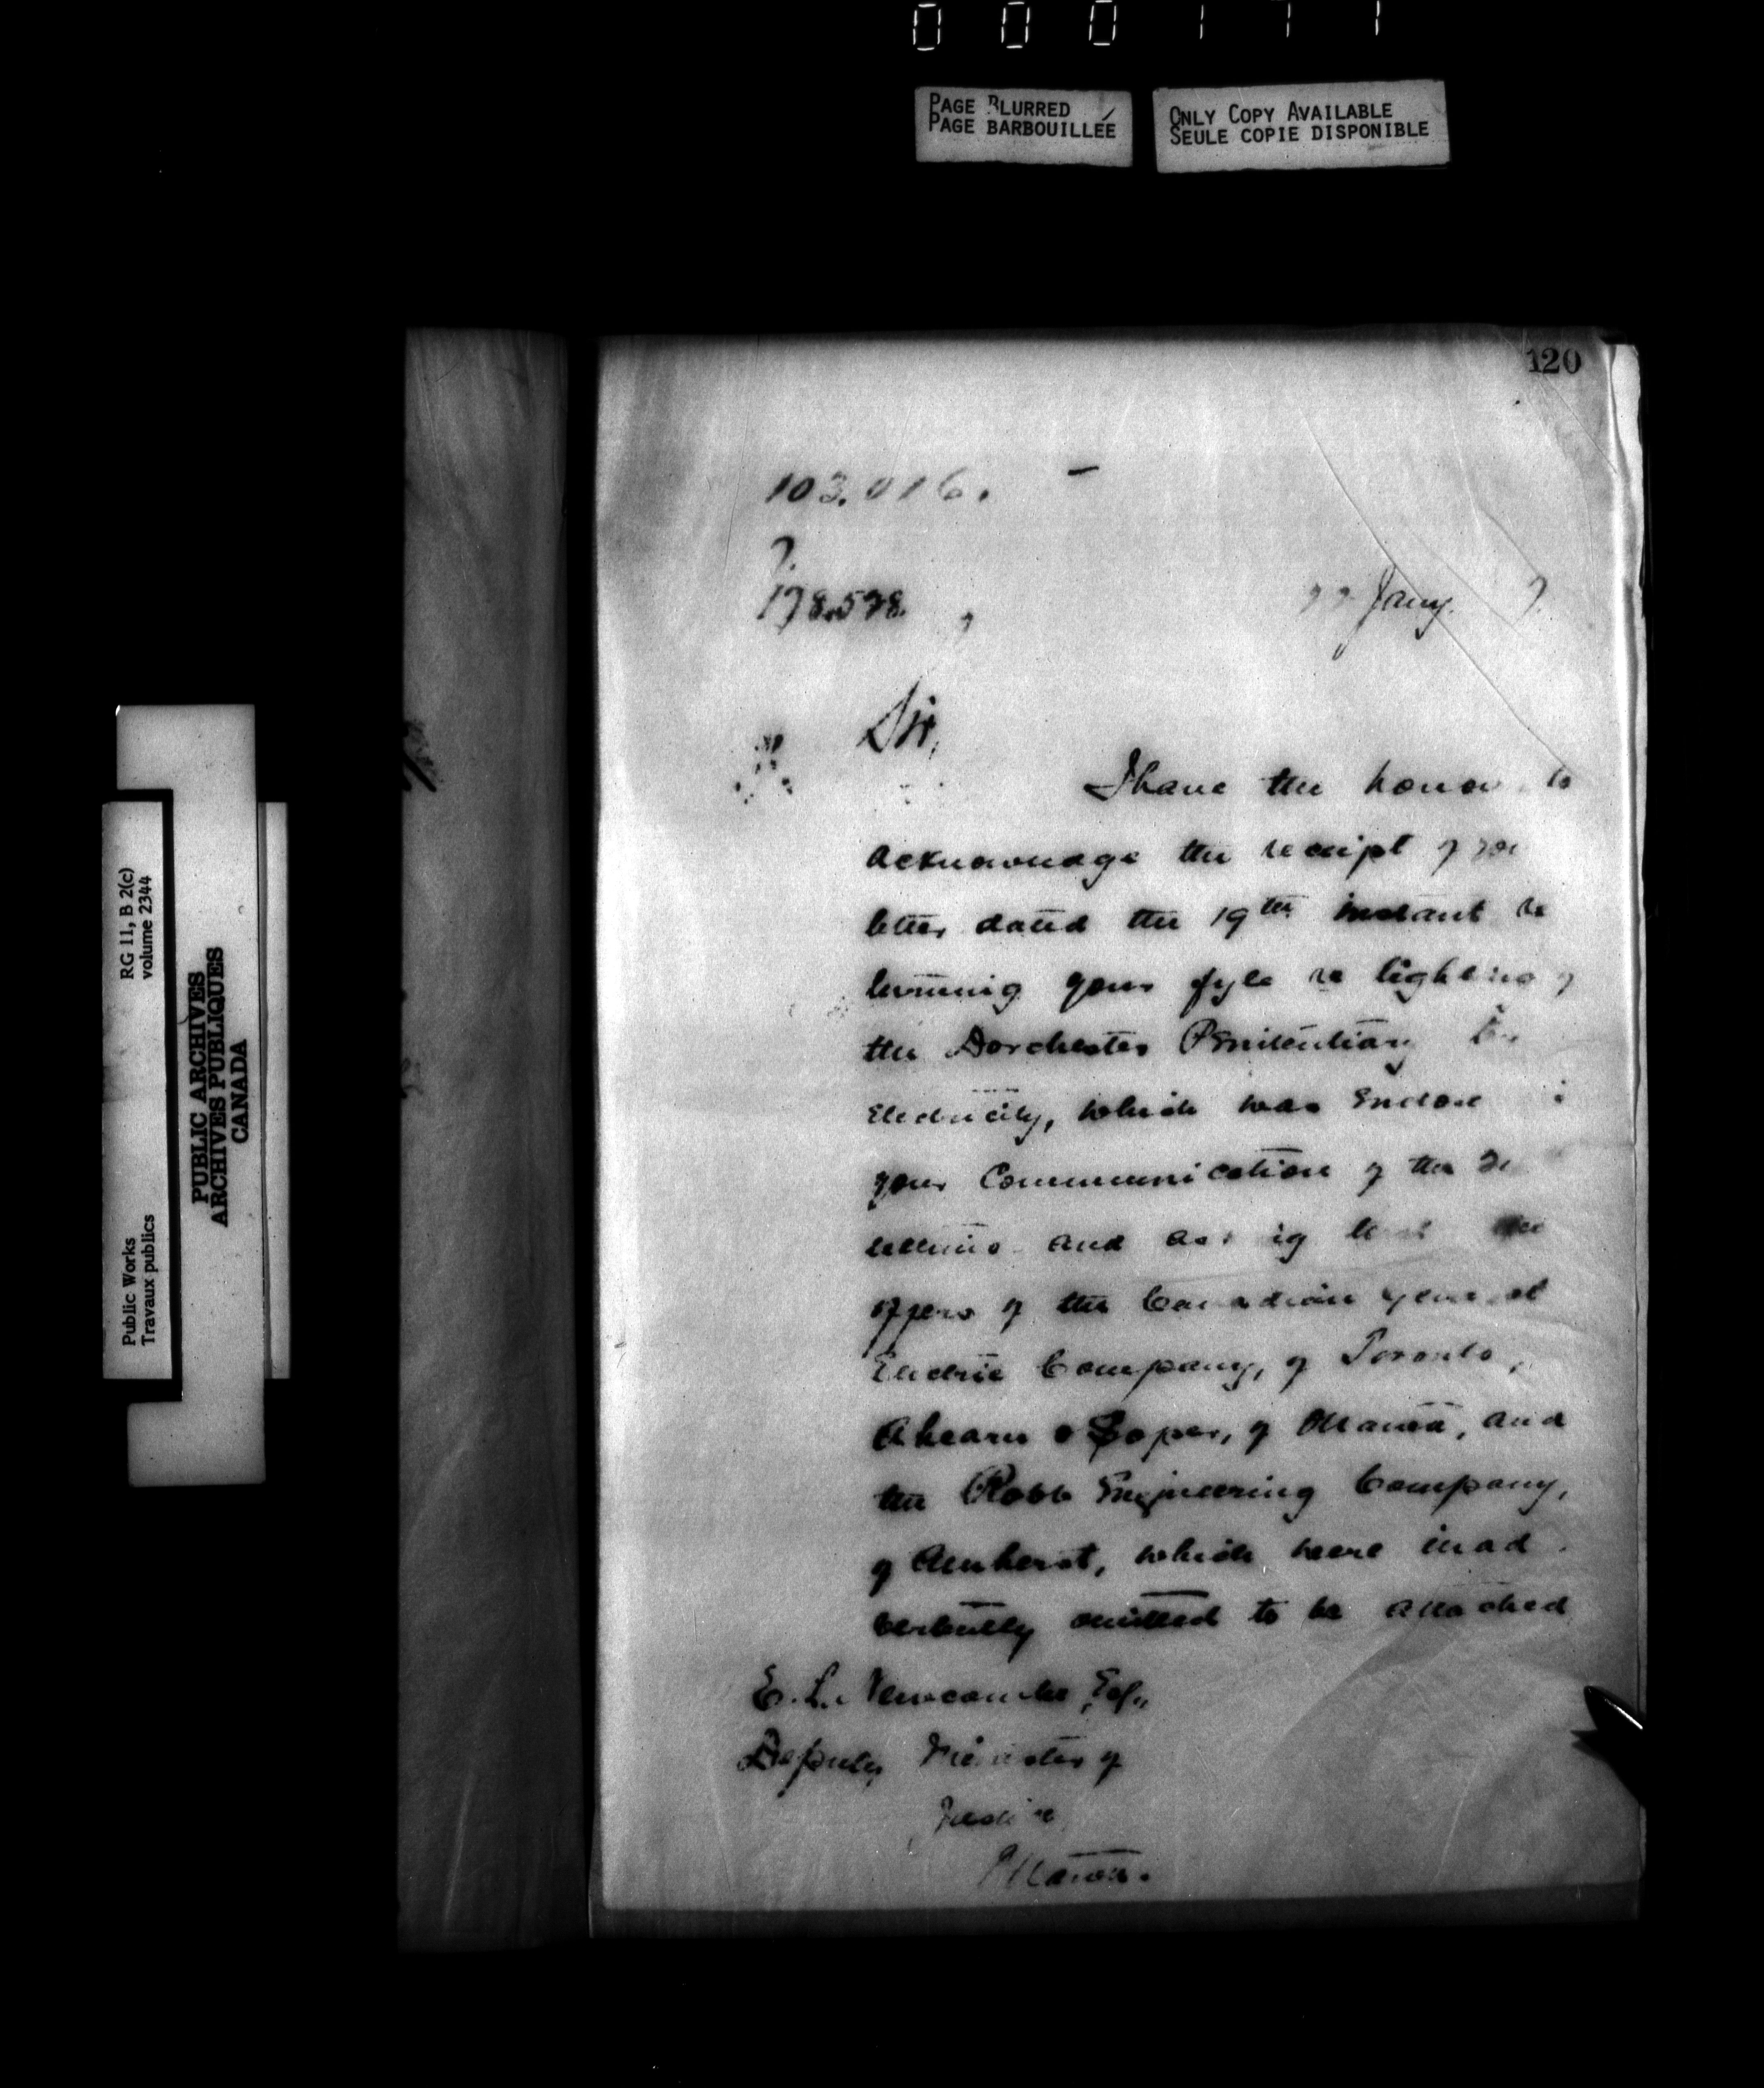 000171
PAGE BLURRED
PAGE BARBOUILLÉE
ONLY COPY AVAILABLE
SEULE COPIE DISPONIBLE
120
103.016.
178.578.
Jany. 7.
Sir,
I have the honor to
acknowledge the receipt of you
letter dated the 19th instant re
turning your fyle re lighting of
the Dorchester Penitentiary by
Electricity, which was Enclose i
your Communication of the
and asking
offers of the Canadian General
Electric Company, of Toronto,
Ahearn & Soper, of Ottawa, and
the Robb Engineering Company,
of Amherst, which were inad
vertently omitted to be attached
E. L. Newcombe, Esq.,
Deputy Minister of
Justice
Ottawa.
Public Works
Travaux publics
RG 11, B 2(c)
volume 2344
PUBLIC ARCHIVES
ARCHIVES PUBLIQUES
CANADA